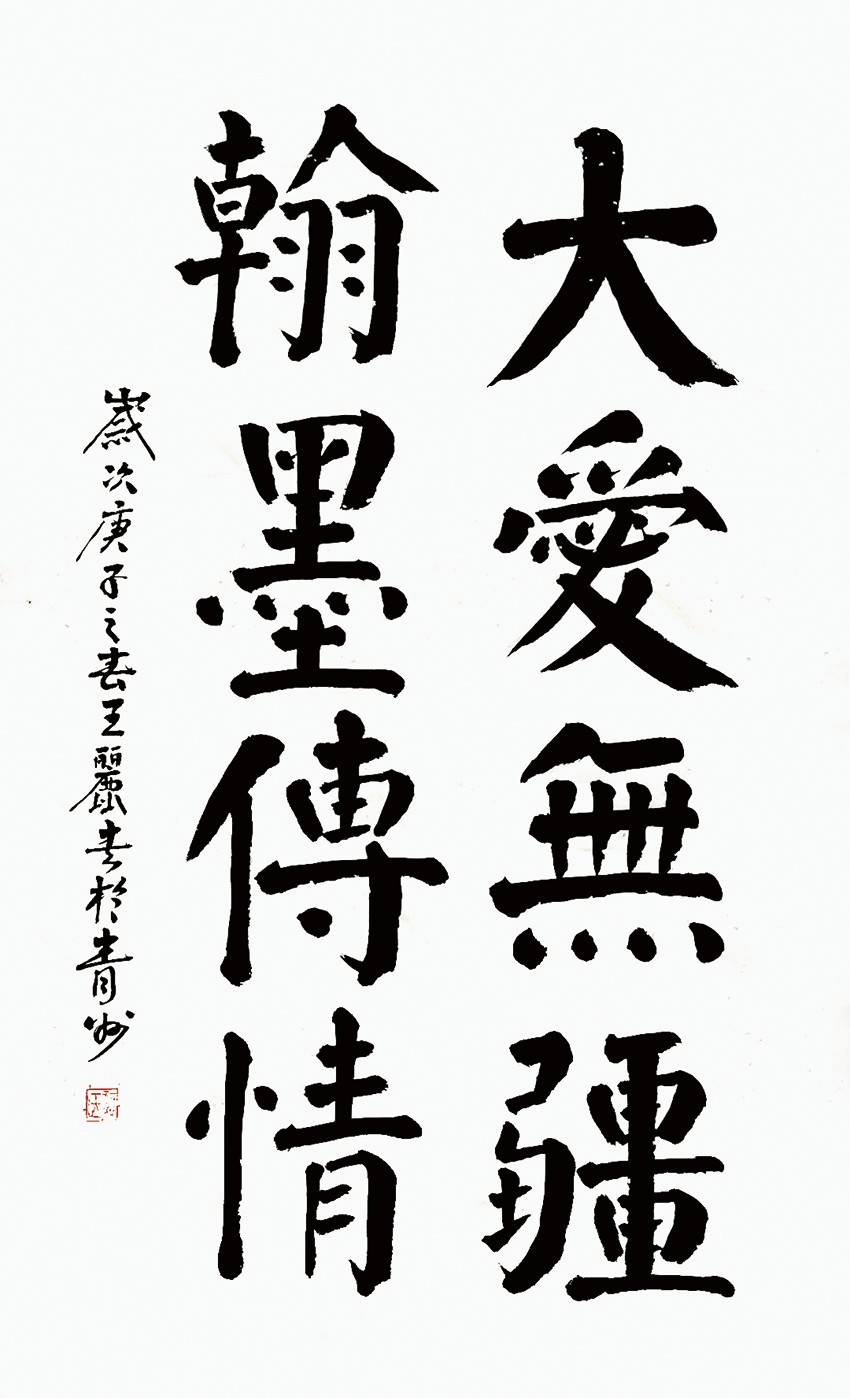 大愛無疆
翰墨傳情
歲次庚子之春王麗書於青州